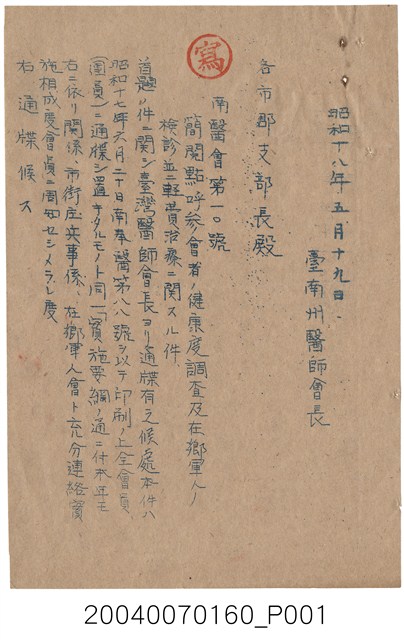 寫
昭和十八年五月十九日、
臺南州醫師會長
各市郡支部長殿
南醫會第一〇號
簡閱點呼參會者ノ健康度調查及在鄉軍人ノ
檢診並ニ輕費治療ニ関スル件
首題ノ件ニ関シ臺灣醫師會長ヨリ通牒有之候處本件ハ
昭和十七年六月二十日南奉醫第八八號ヲ以テ印刷ノ上全會員
(團員)ニ通牒シ置キタルモノト同一實施要綱ノ通ニ付本年モ
右ニ依リ關係、市街庄兵事係、在鄉軍人會ト充分連絡實
施相成度會員ニ周知セシメラレ度
右通牒候ス
20040070160_P001